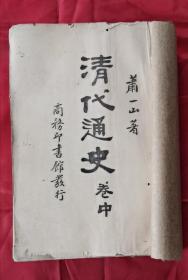 蕭一山著
清代通史 卷中
商務印書館發行